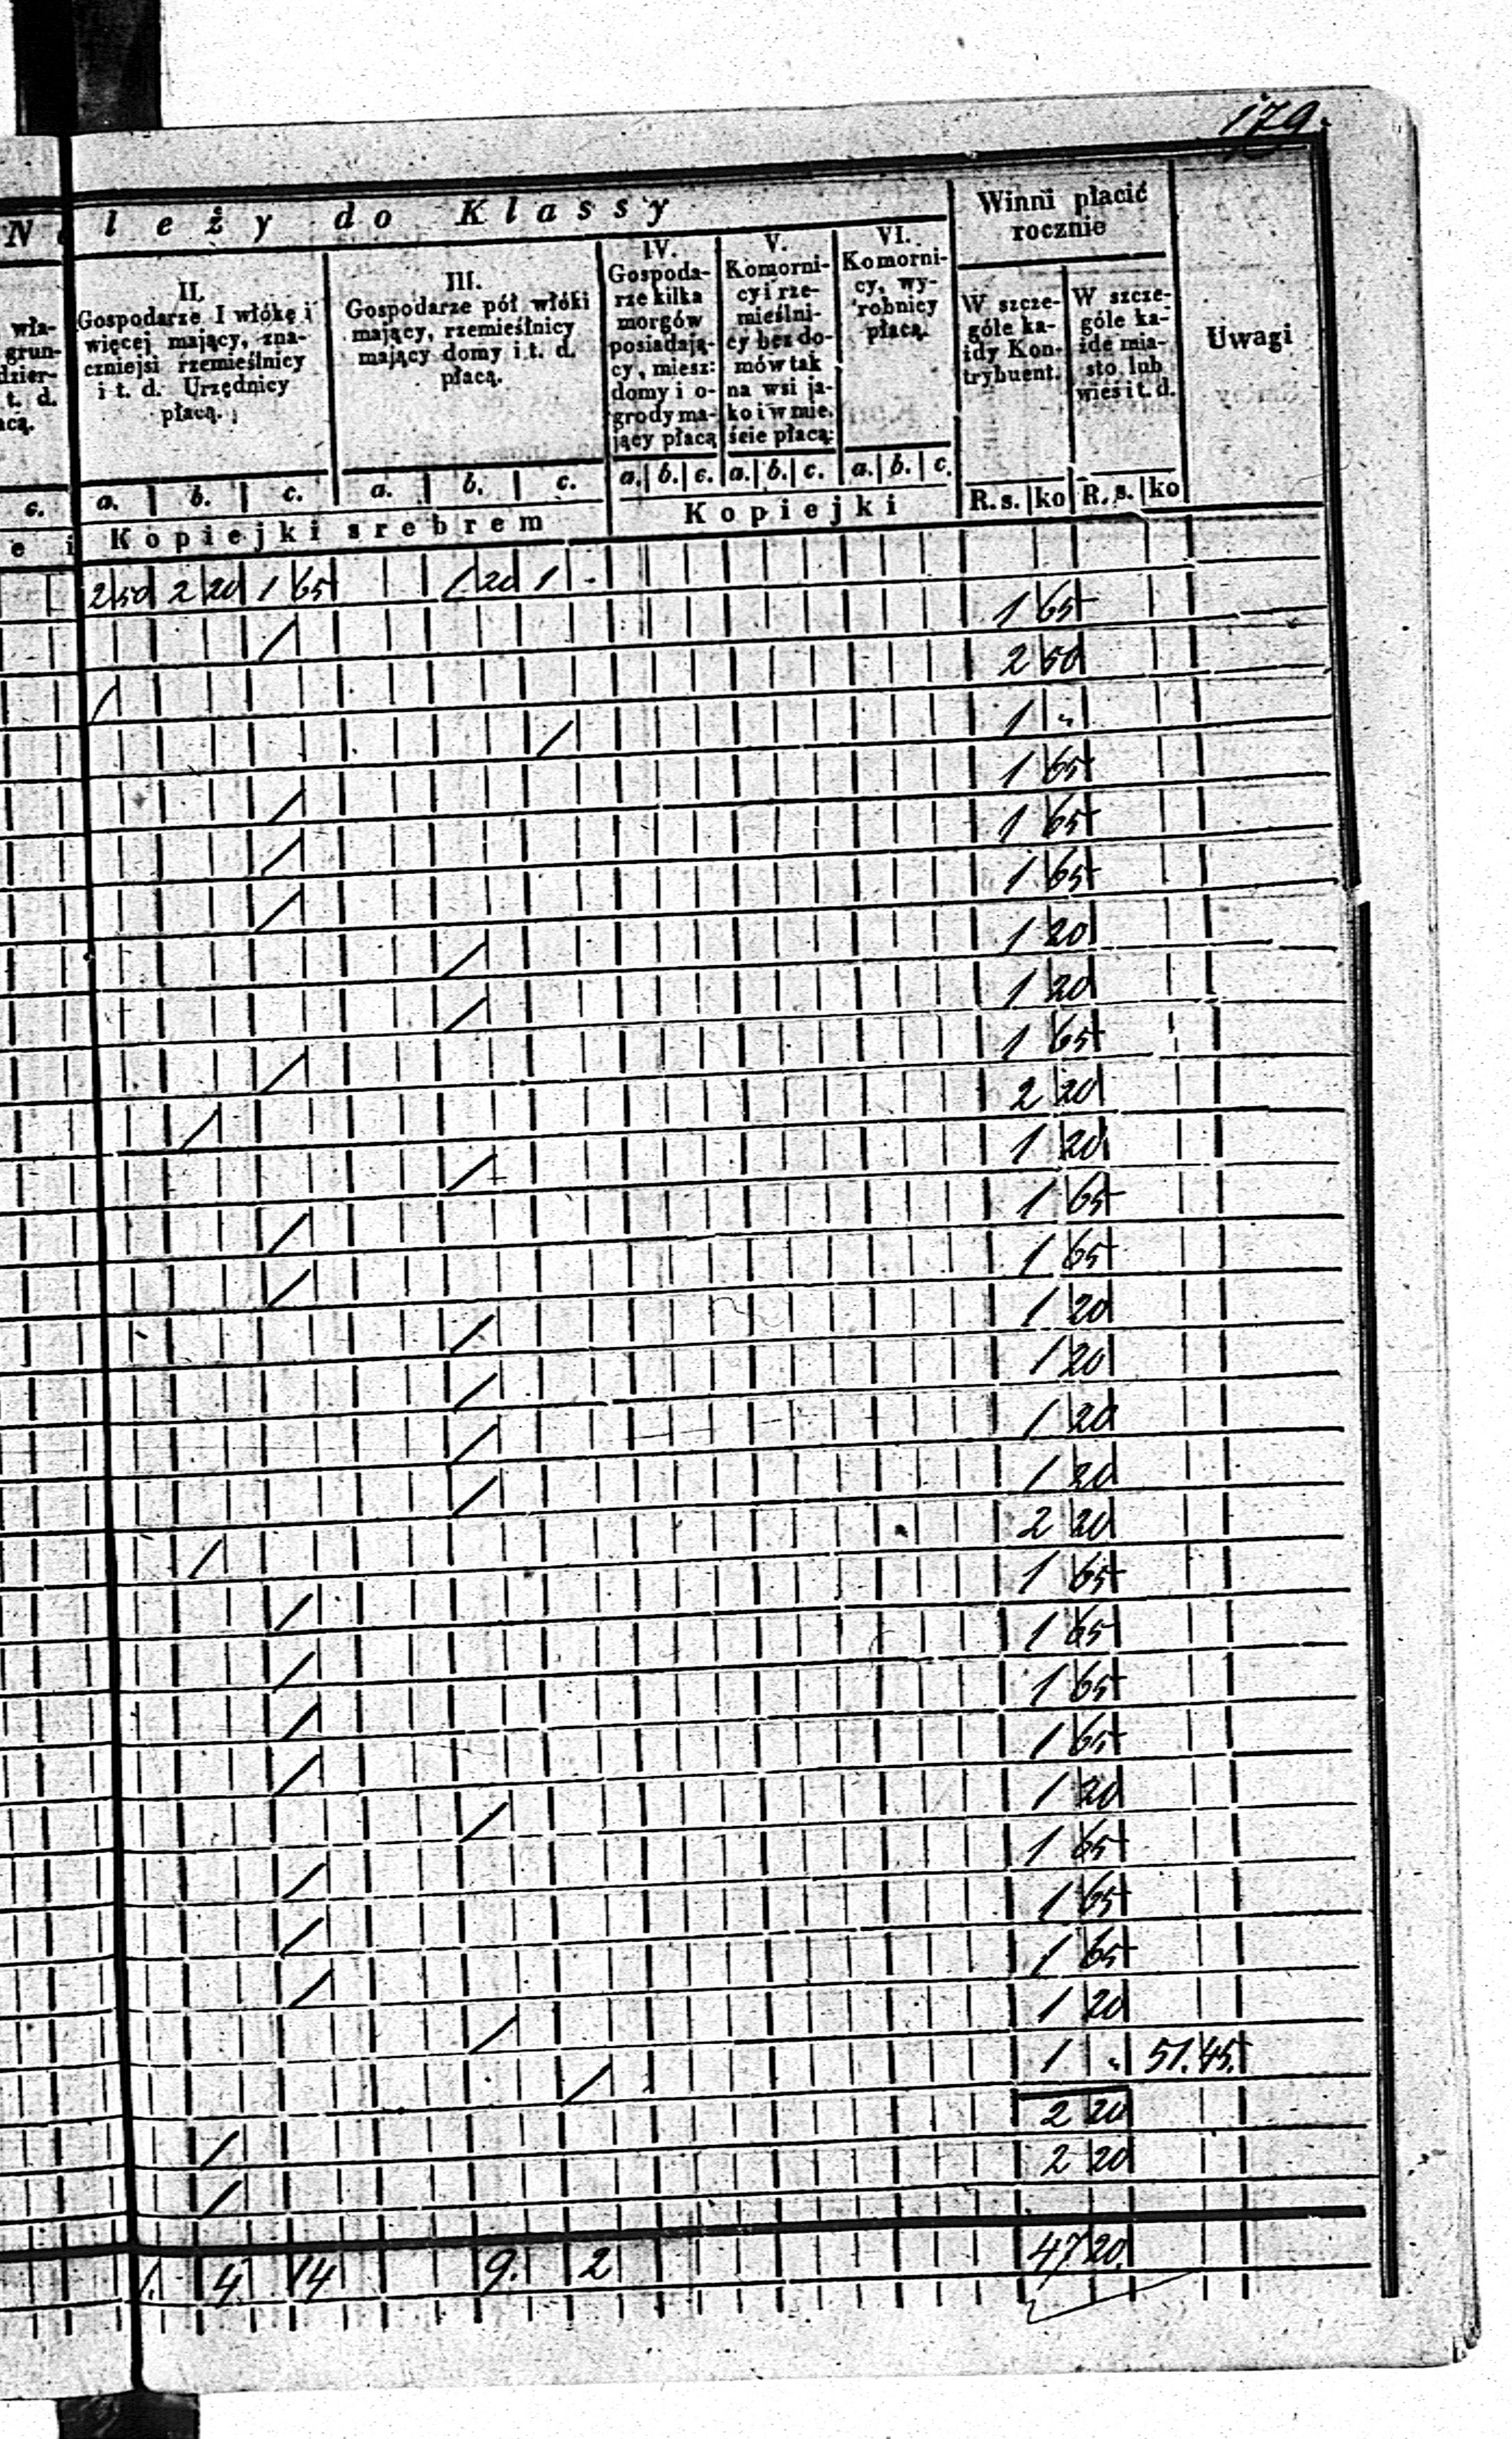 179.
N l e ż y d o K l a s s y
Winni płacić
rocznie
wła-
grun-
dzier-
t. d.
acą.
II.
Gospodarze I włókę i
więcej mający, zna-
czniejsi rzemieślnicy
i t. d. Urzędnicy
płacą.
III.
Gospodarze pół włóki
mający, rzemieślnicy
mający domy i t. d.
płacą.
IV.
Gospoda-
rze kilka
morgów
posiadają-
cy, miesz:
domy i o-
grody ma-
jący płacą
V.
Komorni-
cy i rze-
mieślni-
cy bez do-
mów tak
na wsi ja-
ko i w mie.
ście płacą:
VI.
Komorni-
cy, wy-
robnicy
płacą.
W szcze-
góle ka-
żdy Kon-
trybuent.
W szcze-
góle ka-
żde mia-
sto lub
wieś i t. d.
Uwagi
c. a. b. c. a. b. c. a. b. c. a. b. c. a. b. c. R. s. ko R. s. ko
e i K o p i e j k i s r e b r e m K o p i e j k i
2 50 2 20 1 65 1 20 1 -
/ 1 65
/ 2 50
/ 1 "
/ 1 65
/ 1 65
/ 1 65
/ 1 20
/ 1 20
/ 1 65
/ 2 20
/ 1 20
/ 1 65
/ 1 65
/ 1 20
/ 1 20
/ 1 20
/ 1 20
/ 2 20
/ 1 65
/ 1 65
/ 1 65
/ 1 65
/ 1 20
/ 1 65
/ 1 65
/ 1 65
/ 1 20
/ 1 " 51. 45.
/ 2 20
/ 2 20
1. 4 14 9. 2 47 20